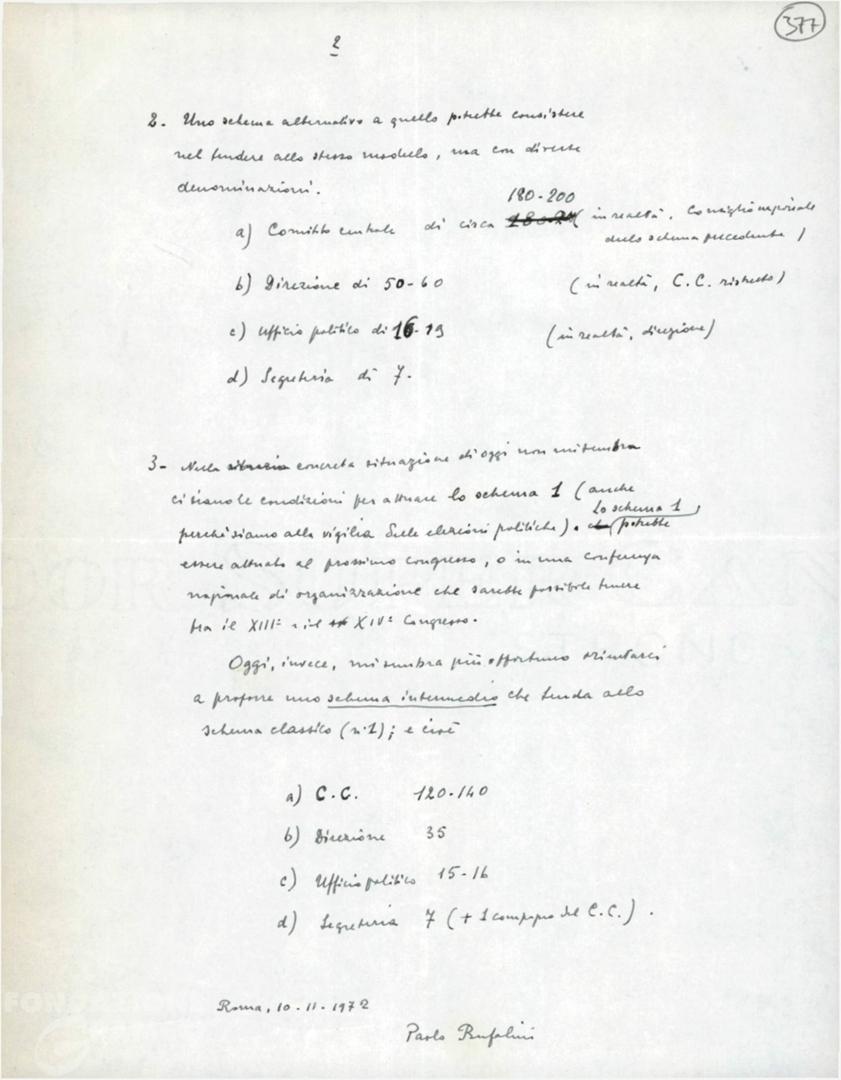 377
2
2. Uno schema alternativo a quello potrebbe consistere
nel tendere allo stesso modello, ma con diverse
denominazioni.
180-200
a) Comitato centrale di circa (in realtà, Consiglio nazionale
dello schema precedente)
b) Direzione di 50-60 (in realtà, C.C. ristretto)
c) Ufficio politico di 16-19 (in realtà, direzione)
d) Segreteria di 7.
3- Nella concreta situazione di oggi non mi sembra
ci siano le condizioni per attuare lo schema 1 (anche
lo schema 1
perché siamo alla vigilia delle elezioni politiche). potrebbe
essere attuato al prossimo congresso, o in una conferenza
nazionale di organizzazione che sarebbe possibile tenere
tra il XIII° e il XIV° Congresso.
Oggi, invece, mi sembra più opportuno orientarci
a proporre uno schema intermedio che tenda allo
schema classico (n°1); e cioè
a) C.C. 120-140
b) Direzione 35
c) Ufficio politico 15-16
d) Segreteria 7 (+ 1 compagno del C.C.).
Roma, 10-11-1972
Paolo Bufalini
FONDAZIONE